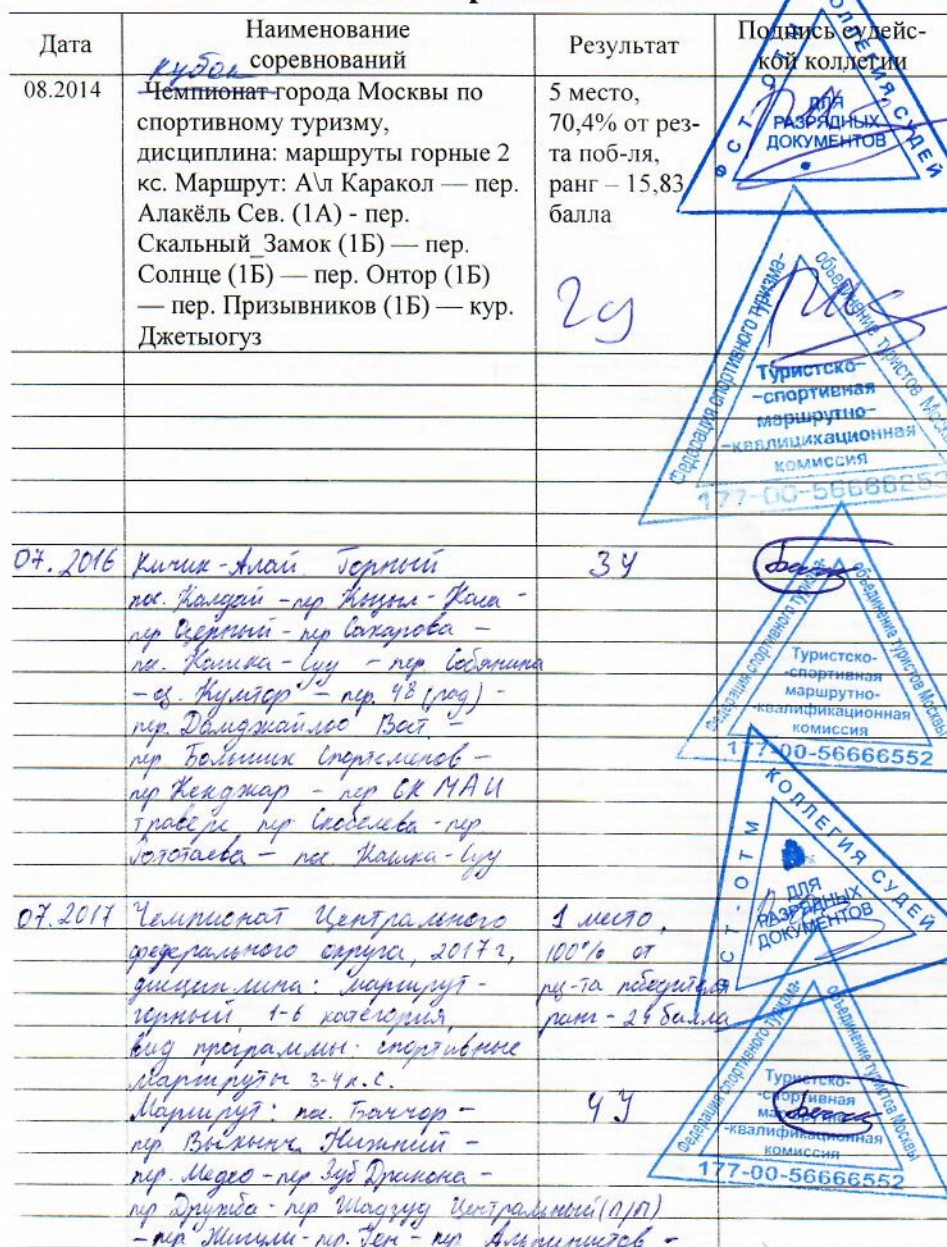 Дата
Наименование
соревнований
Результат
Подпись судейс-
кой коллегии
08.2014
кубок
Чемпионат города Москвы по
спортивному туризму,
дисциплина: маршруты горные 2
кс. Маршрут: А\л Каракол — пер.
Алакёль Сев. (1А) - пер.
Скальный_Замок (1Б) — пер.
Солнце (1Б) — пер. Онтор (1Б)
— пер. Призывников (1Б) — кур.
Джетыогуз
5 место,
70,4% от рез-
та поб-ля,
ранг – 15,83
балла
2у
КОЛЛЕГИЯ СУДЕЙ
ФСТ-ОТМ
ДЛЯ
РАЗРЯДНЫХ
ДОКУМЕНТОВ
Федерация спортивного туризма-
объединение туристов Москвы
Туристско-
-спортивная
маршрутно-
-квалификационная
комиссия
177-00-5666625
07.2016
Кичик-Алай Горный
пос. Калдай - пер Кызыл-Кала -
пер Озерный - пер Сахарова -
пос. Кашка-Суу - пер. Собянина
- оз. Кумтор - пер. 48 (рад) -
пер. Дамджайлоо Вост. -
пер Больших Спортсменов -
пер Кенджар - пер СК МАИ
траверс пер Скобелева - пер.
Гототаева - пос. Кашка-Суу
3У
Федерация спортивного туризма-
объединение туристов Москвы
Туристско-
-спортивная
маршрутно-
-квалификационная
комиссия
177-00-56666552
КОЛЛЕГИЯ СУДЕЙ
СТ-ОТМ
ДЛЯ
РАЗРЯДНЫХ
ДОКУМЕНТОВ
07.2017
Чемпионат Центрального
федерального округа, 2017 г,
дисциплина: маршрут -
горный 1-6 категория,
вид программы: спортивные
маршруты 3-4 к.с.
Маршрут: пос. Баччор -
пер Выхынч Нижний -
пер. Медео - пер Зуб Дракона -
пер Дружба - пер Шадзуд Центральный (п/п)
- пер Жигули - пер. Ген - пер Альпинистов -
1 место,
100% от
рез-та победителя
ранг - 24 балла
4У
Федерация спортивного туризма-
объединение туристов Москвы
Туристско-
-спортивная
маршрутно-
-квалификационная
комиссия
177-00-56666552